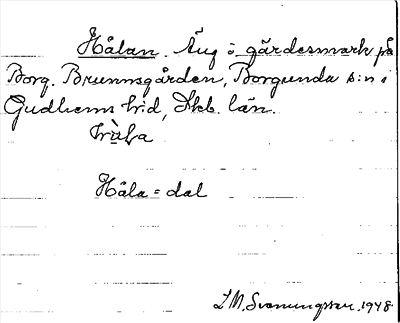 Hålan. Äng i gärdesmark på
Borg. Brunnsgården, Borgunda s:n i
Gudhems h:d, Skb. län.
Håla = dal
I. M. Svanungsson. 1948